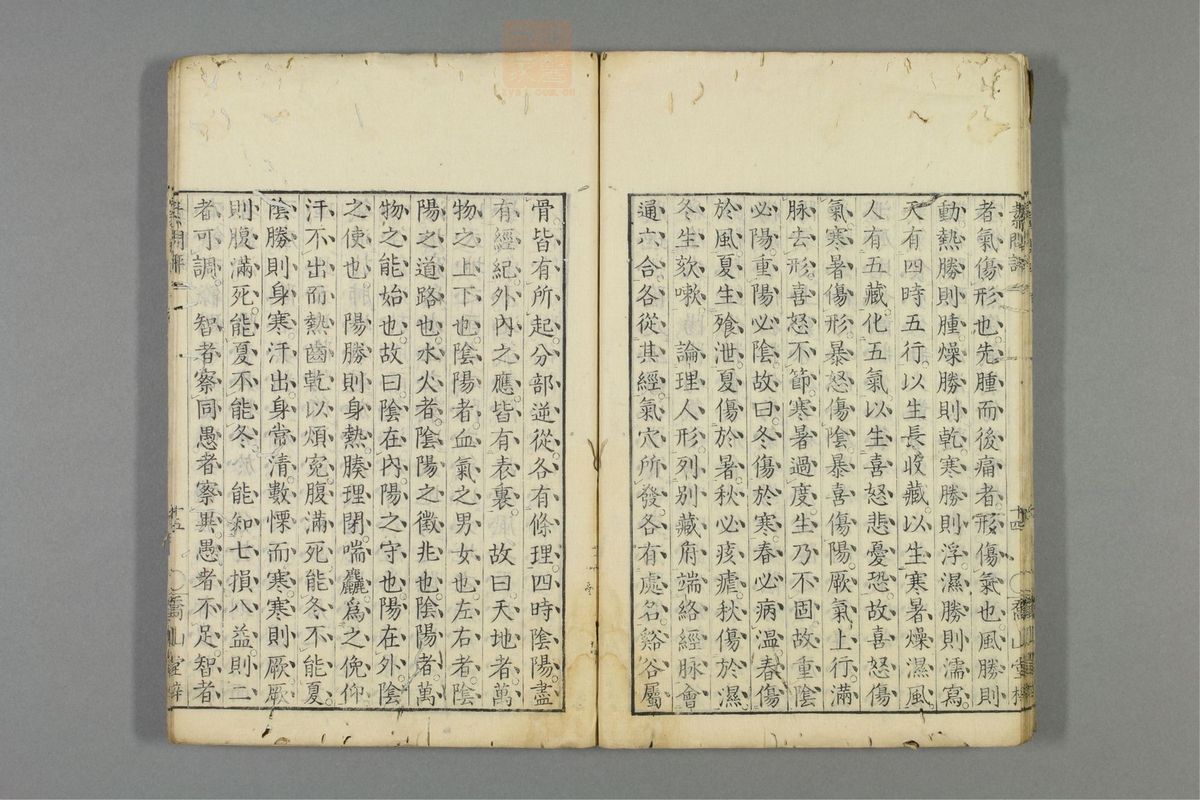 者氣傷形也先腫而後痛者形傷氣也風勝則
動熱勝則腫燥勝則乾寒勝則浮濕勝則濡寫
天有四時五行以生長收藏以生寒暑燥濕風
人有五藏化五氣以生喜怒悲憂恐故喜怒傷
氣寒暑傷形暴怒傷陰暴喜傷陽厥氣上行滿
脉去形喜怒不節寒暑過度生乃不固故重陰
必陽重陽必陰故曰冬傷於寒春必病溫春傷
於風夏生飱泄夏傷於暑秋必痎瘧秋傷於濕
冬生欬嗽 論理人形列別藏府端絡經脉會
通六合各從其經氣穴所發各有處名谿谷屬
骨皆有所起分部逆從各有條理四時陰陽盡
有經紀外內之應皆有表裏 故曰天地者萬
物之上下也陰陽者血氣之男女也左右者陰
陽之道路也水火者陰陽之徵兆也陰陽者萬
物之能始也故曰陰在內陽之守也陽在外陰
之使也 陽勝則身熱腠理閉喘麤爲之俛仰
汗不出而熱齒乾以煩寃腹滿死能冬不能夏
陰勝則身寒汗出身常清數慄而寒寒則厥厥
則腹滿死能夏不能冬 能知七損八益則二
者可調 智者察同愚者察異愚者不足智者